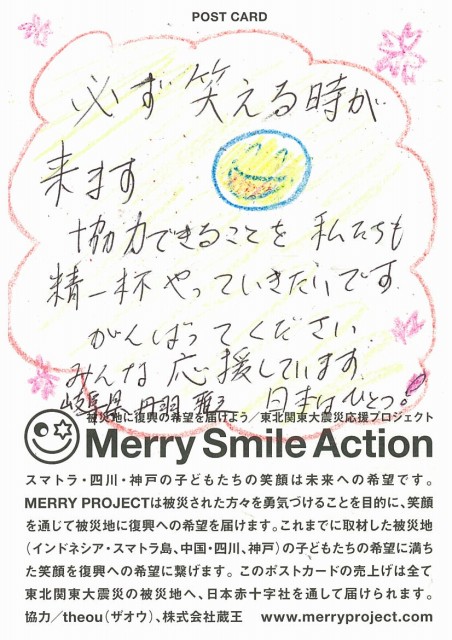 POST CARD
必ず 笑える時が
来ます
協力できることを 私たちも
精一杯やっていきたいです.
がんばってください.
みんな応援しています.
岐阜県 丹羽 日本はひとつ。
被災地に復興の希望を届けよう／東北関東大震災応援プロジェクト
Merry Smile Action
スマトラ・四川・神戸の子どもたちの笑顔は未来への希望です。
MERRY PROJECTは被災された方々を勇気づけることを目的に、笑顔
を通じて被災地に復興への希望を届けます。これまでに取材した被災地
（インドネシア・スマトラ島、中国・四川、神戸）の子どもたちの希望に満ち
た笑顔を復興への希望に繋げます。このポストカードの売上げは全て
東北関東大震災の被災地へ、日本赤十字社を通して届けられます。
協力／theou（ザオウ）、株式会社蔵王 www.merryproject.com